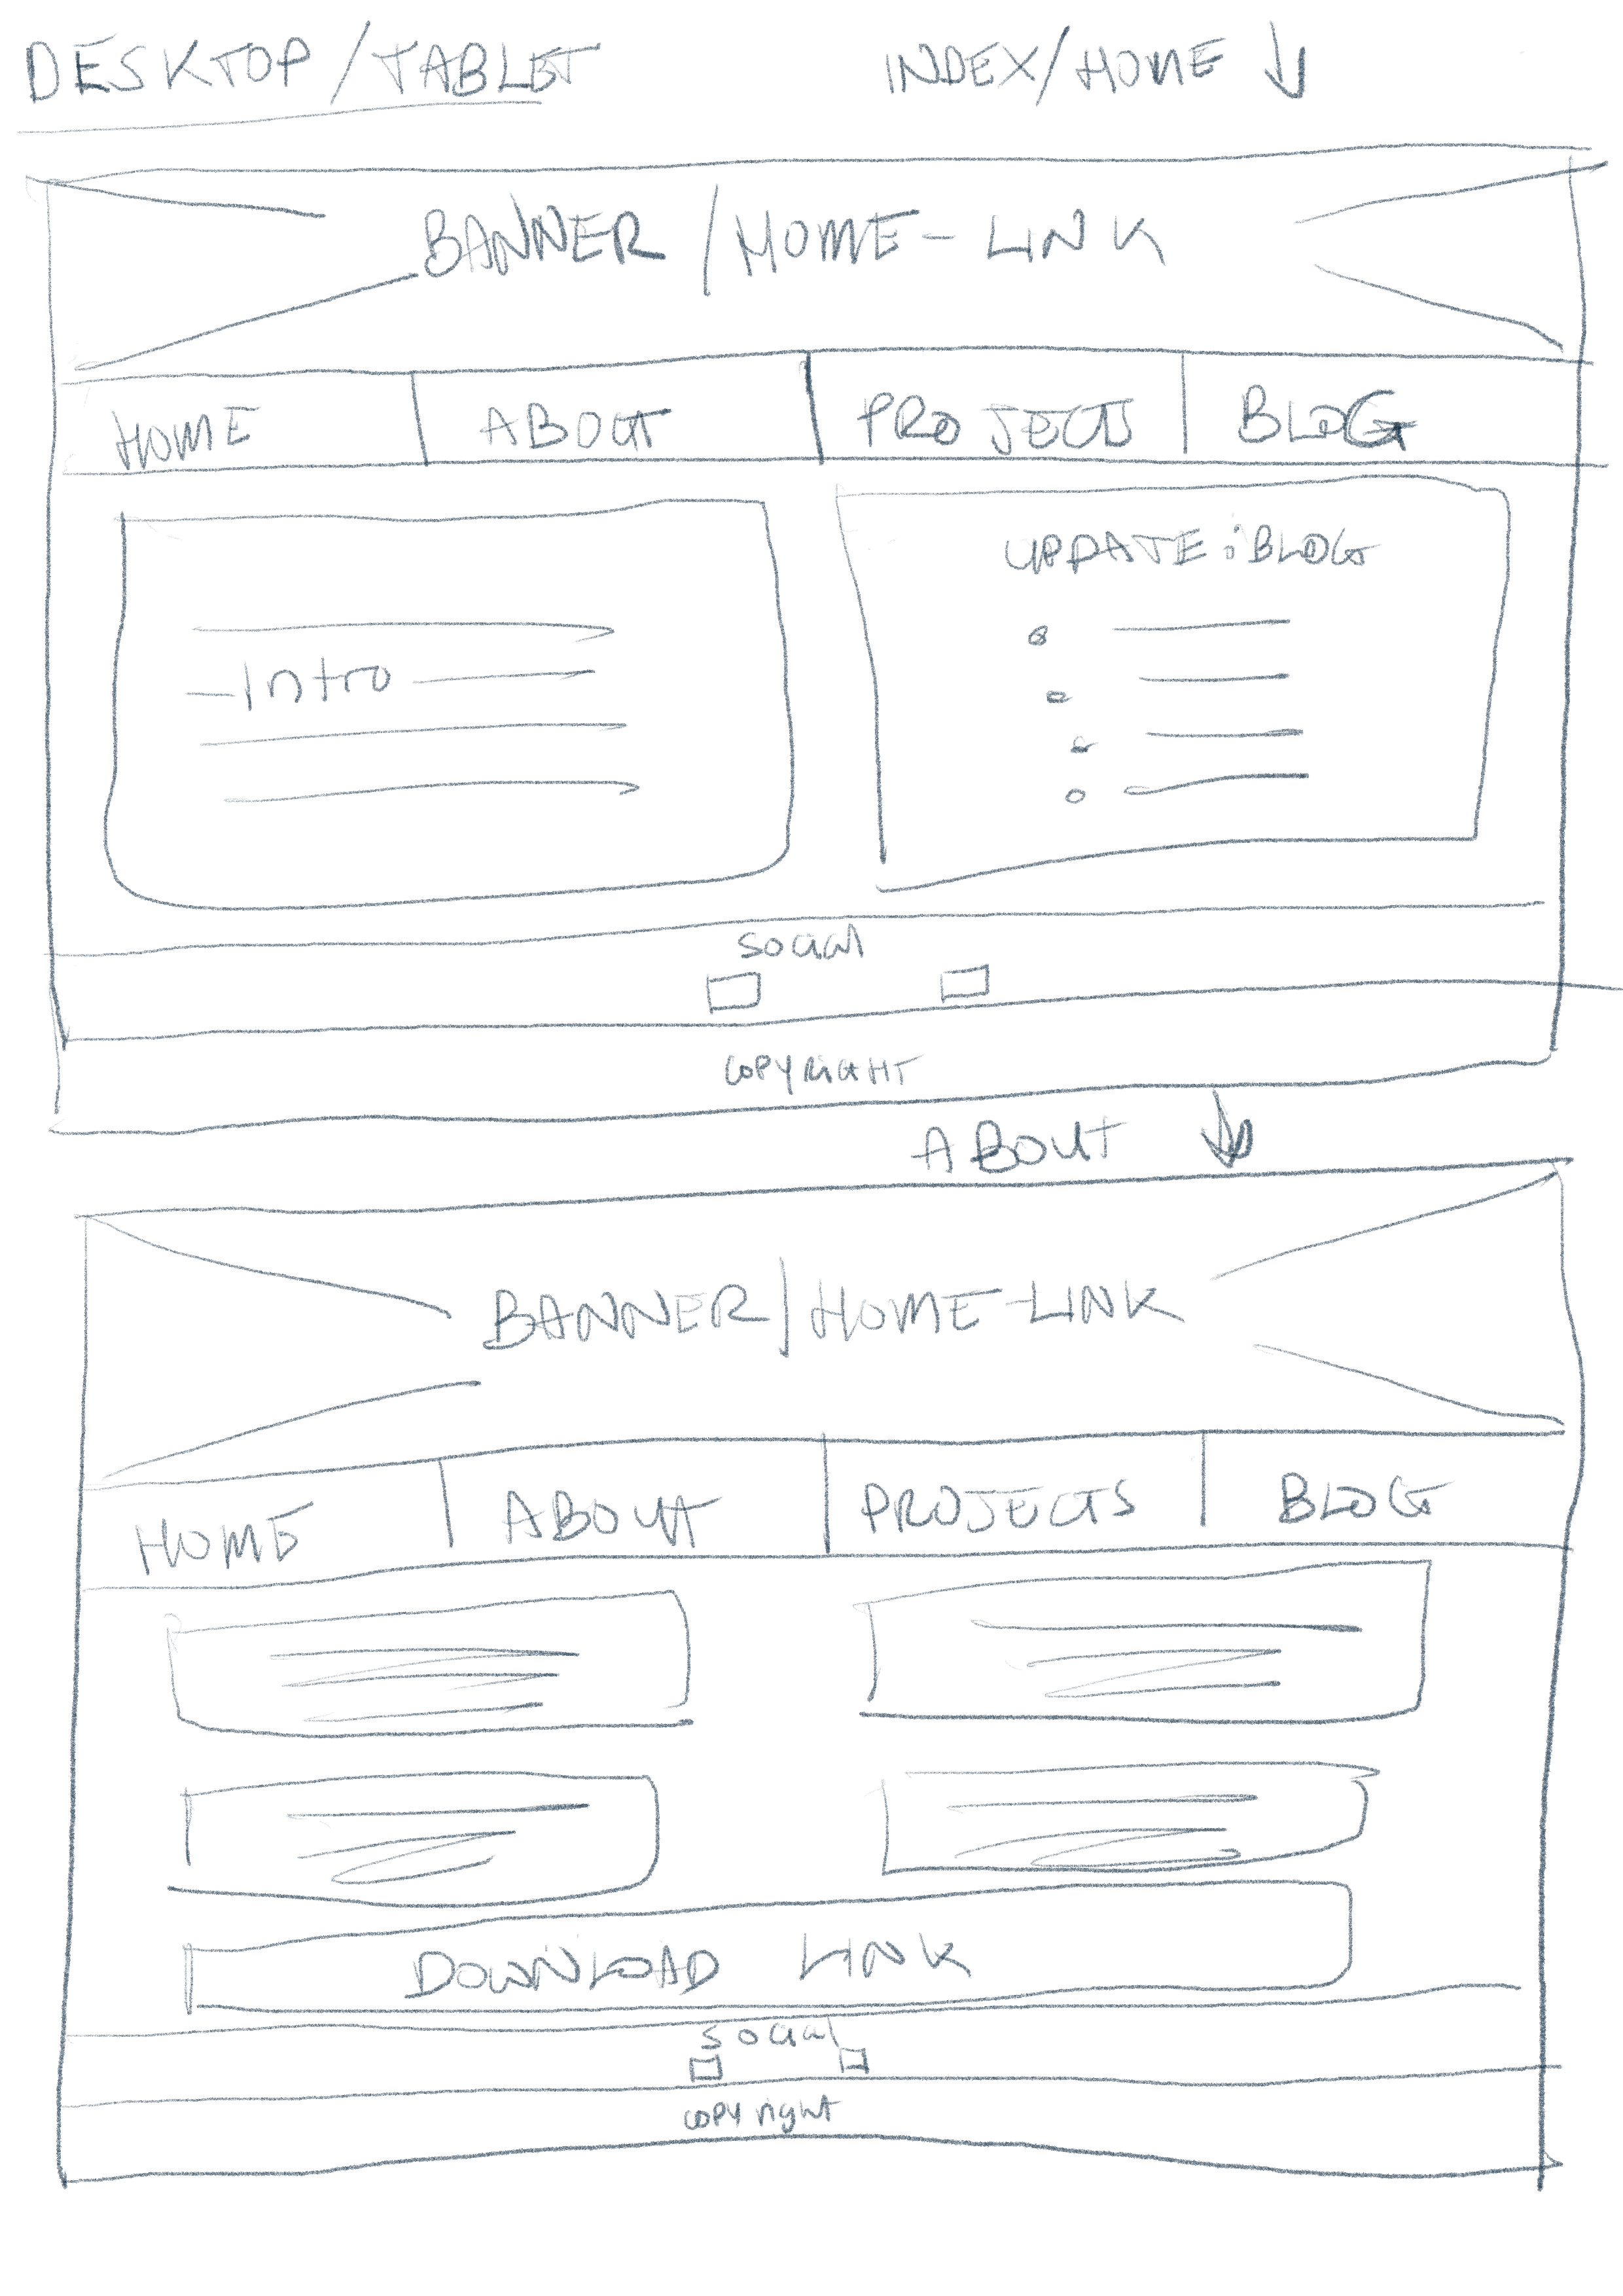 DESKTOP/TABLET
INDEX/HOME
BANNER/HOME-LINK
HOME ABOUT PROJECTS BLOG
Intro
UPDATE:BLOG
social
COPYRIGHT
ABOUT
BANNER/HOME-LINK
HOME ABOUT PROJECTS BLOG
DOWNLOAD LINK
social
copyright